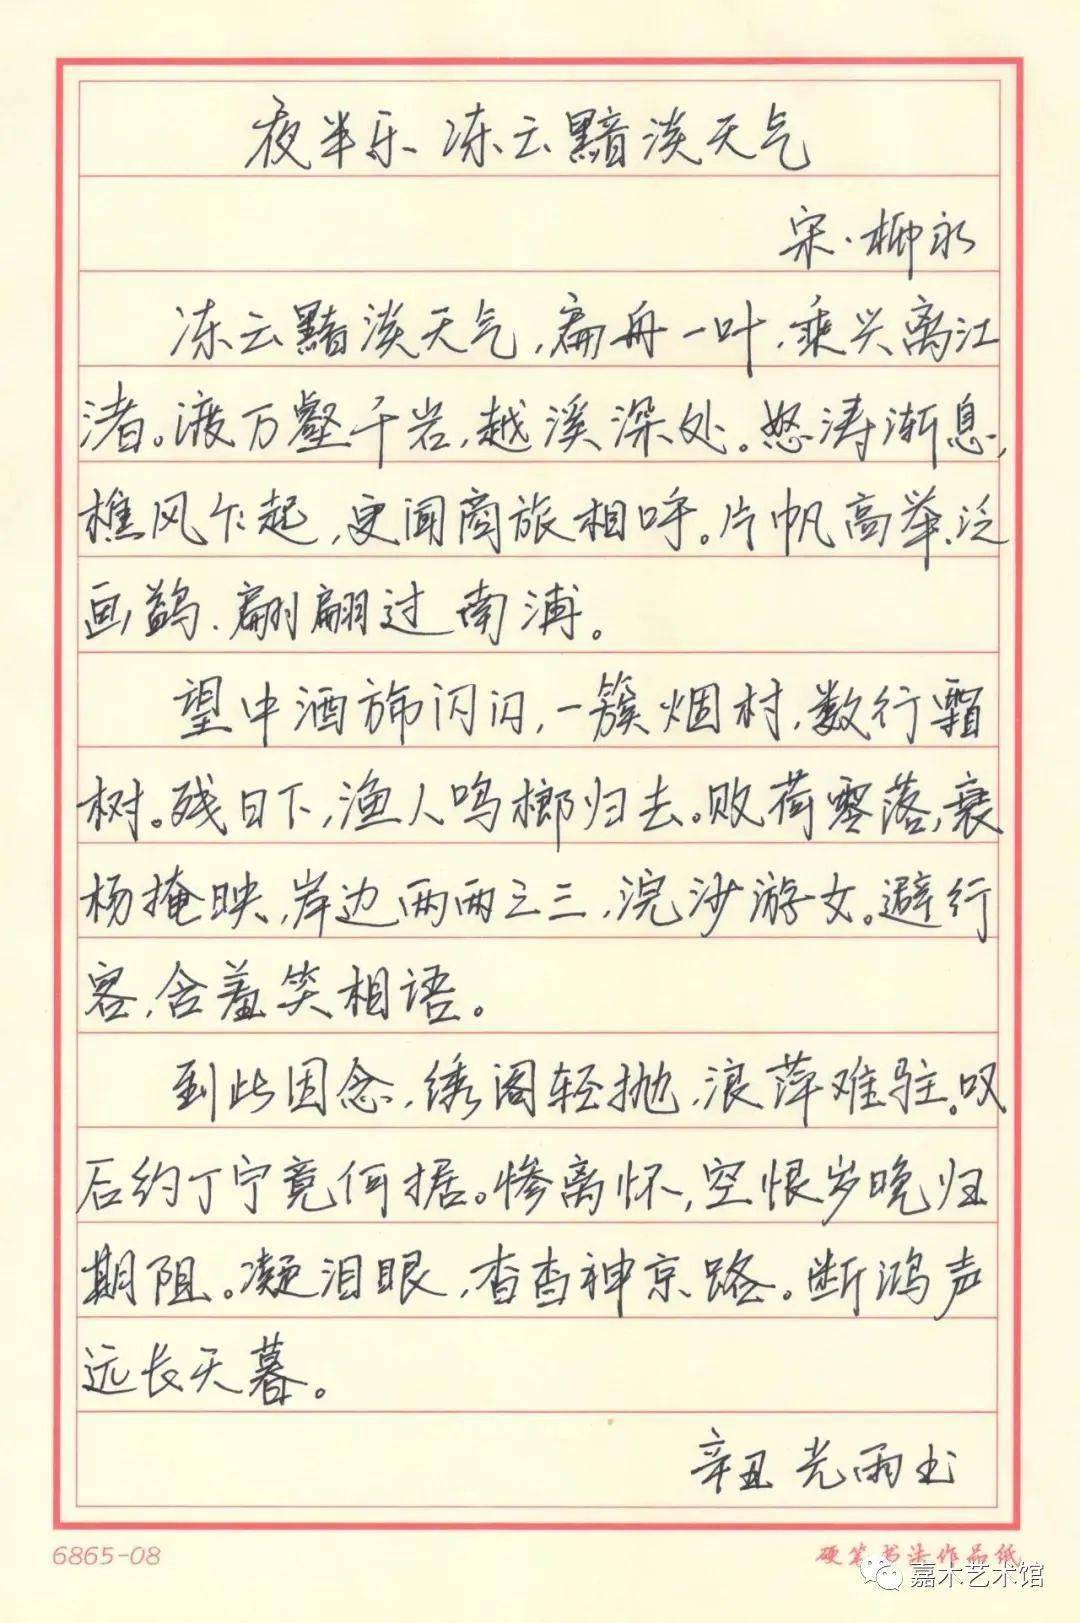 夜半乐、冻云黯淡天气
宋·柳永
冻云黯淡天气,扁舟一叶,乘兴离江
渚。渡万壑千岩,越溪深处。怒涛渐息,
樵风乍起,更闻商旅相呼。片帆高举、泛
画鹢、翩翩过南浦。
望中酒旆闪闪,一簇烟村,数行霜
树。残日下,渔人鸣榔归去。败荷零落,衰
杨掩映,岸边两两三三,浣沙游女。避行
客,含羞笑相语。
到此因念,绣阁轻抛,浪萍难驻。叹
后约丁宁竟何据。惨离怀,空恨岁晚归
期阻。凝泪眼,杳杳神京路。断鸿声
远长天暮。
辛丑 光雨书
6865-08
硬笔书法作品纸
嘉木艺术馆